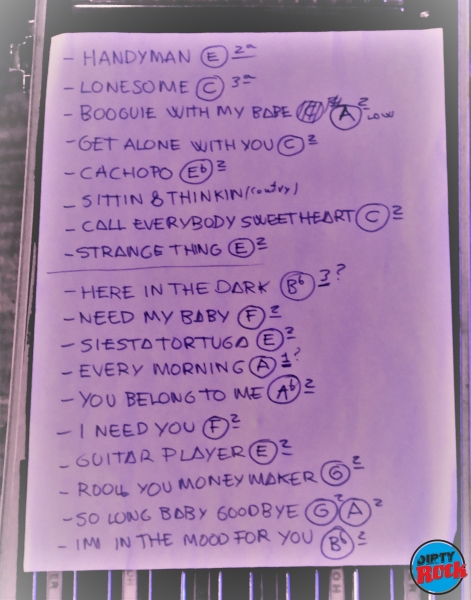 - HANDYMAN E 2ª
- LONESOME C 3ª
- BOOGUIE WITH MY BABE A 2 LOW
- GET ALONE WITH YOU C 2
- CACHOPO Eb 2
- SITTIN & THINKIN (country)
- CALL EVERYBODY SWEETHEART C 2
- STRANGE THING E 2
- HERE IN THE DARK Bb 3?
- NEED MY BABY F 2
- SIESTA TORTUGA E 2
- EVERY MORNING A 1?
- YOU BELONG TO ME Ab 2
- I NEED YOU F 2
- GUITAR PLAYER E 2
- ROOLL YOU MONEY MAKER G 2
- SO LONG BABY GOODBYE G 2 A 2
- IM IN THE MOOD FOR YOU Bb 2
DIRTY
ROCK